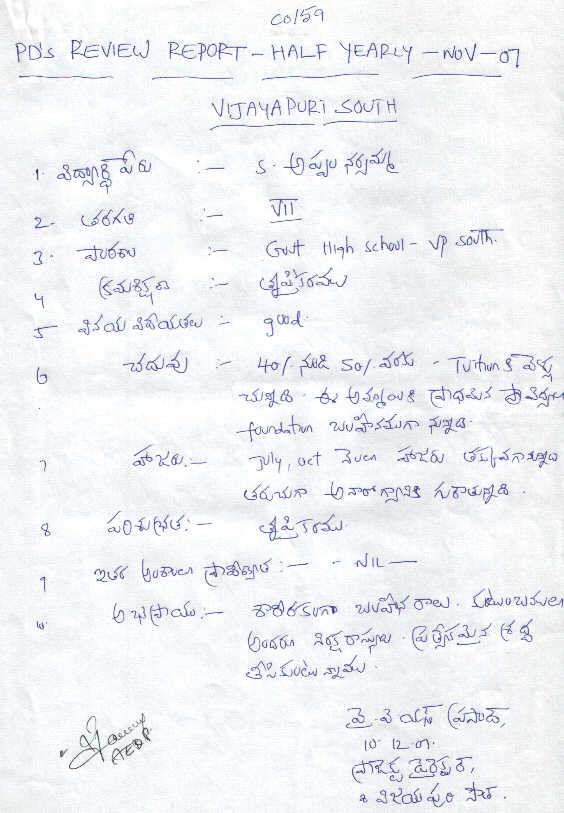 CO/59
PD's REVIEW REPORT - HALF YEARLY - NOV - 07
VIJAYAPURI SOUTH
1. విద్యార్థి పేరు :- S. అప్పల నర్సమ్మ
2. తరగతి :- VII
3. పాఠశాల :- Govt High school - VP south.
4 క్రమశిక్షణ :- తృప్తికరము
5 వినయ విధేయతలు :- good.
6 చదువు :- 40/. నుండి 50/. వరకు - Tuition కి వెళ్లు
చున్నది. ఈ అమ్మాయికి ప్రాధమిక
foundation బలహీనముగా నున్నది.
7 హాజరు :- July, oct నెలల హాజరు తక్కువగానున్నది
తరుచుగా అనారోగ్యానికి గురౌతున్నది.
8 పరిశుభ్రత :- తృప్తికరము.
9 ఇతర అంశాలలో ప్రావీణ్యత :- - NIL -
10. అభిప్రాయం :- శారీరకంగా బలహీనురాలు. కుటుంబములో
అందరూ నిరక్షరాస్యులు. ప్రత్యేకమైన శ్రద్ధ
తీసికుంటున్నాము.
వై. వి యస్ ప్రసాద్,
10.12.07.
ప్రాజెక్టు డైరెక్టర్,
విజయపురి సౌత్.